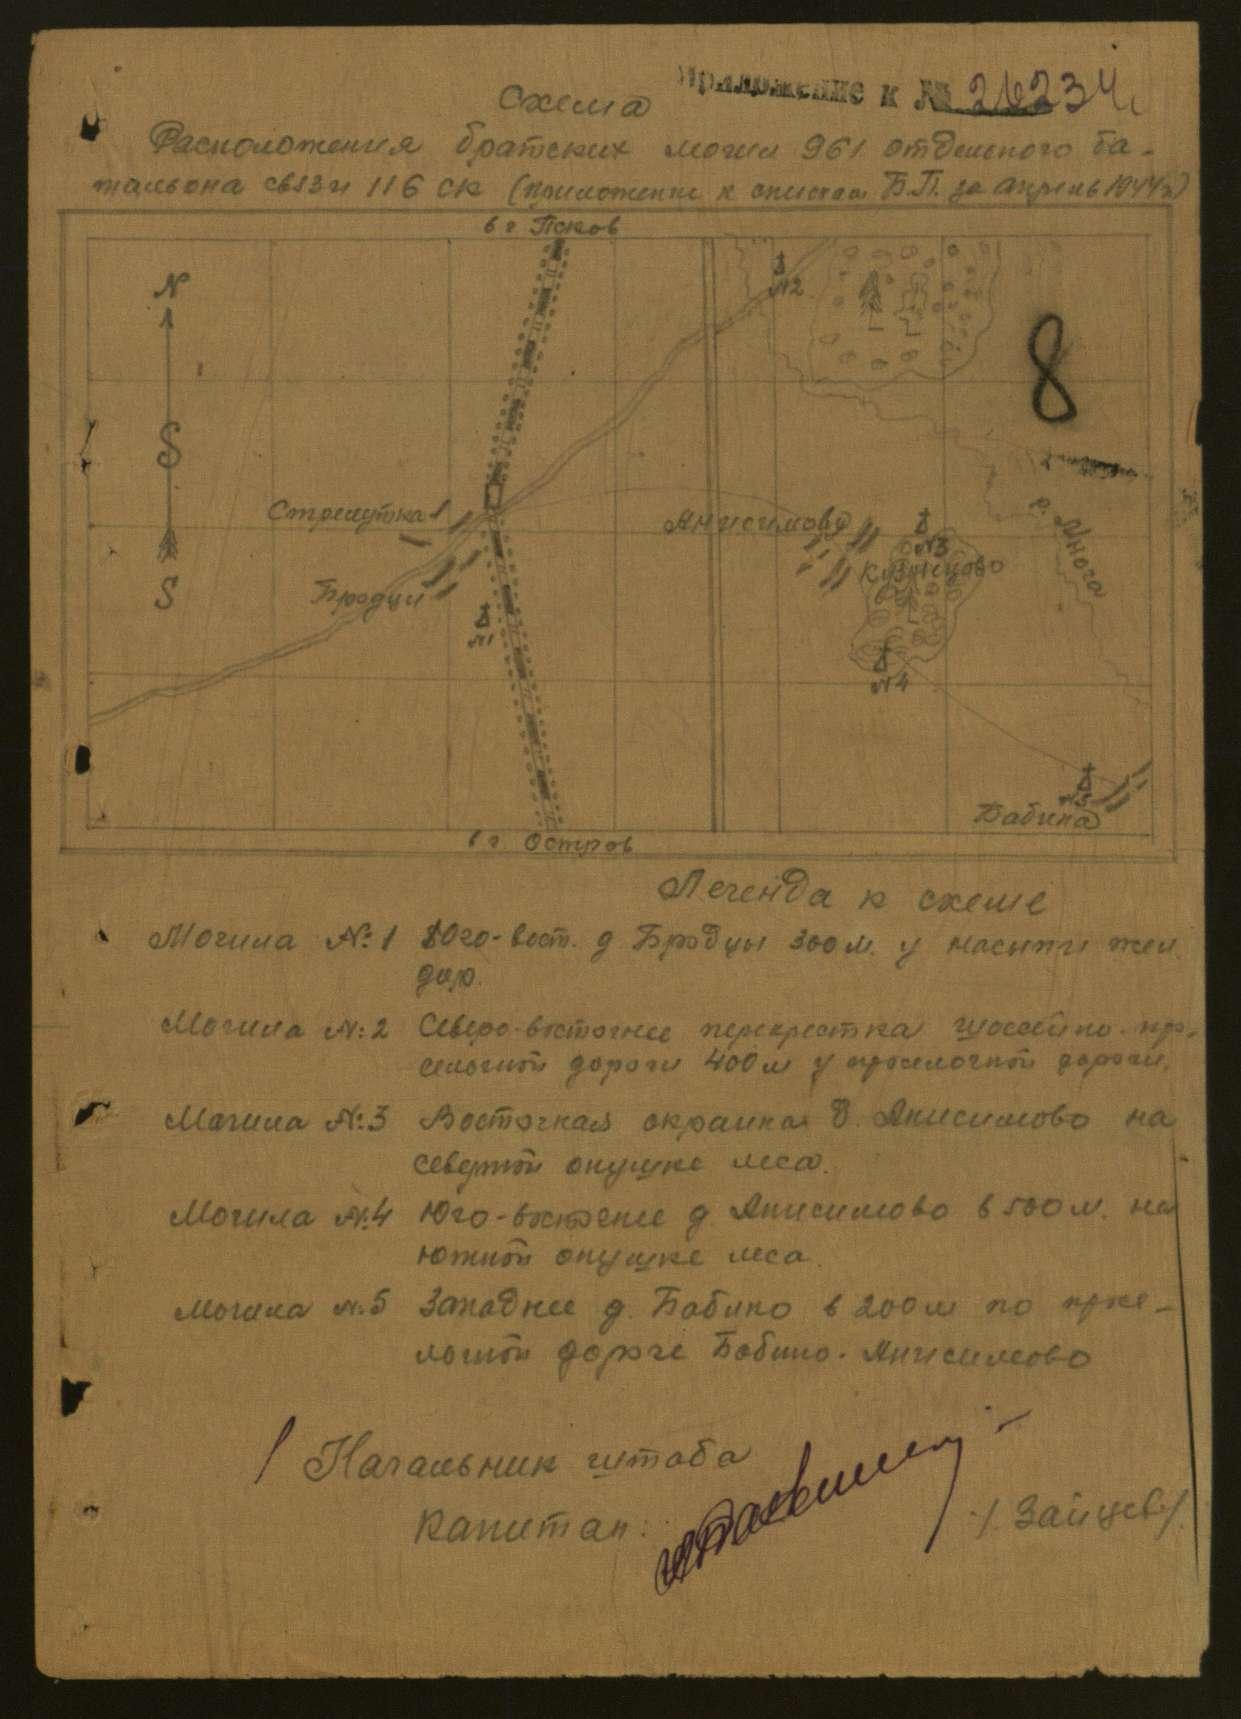 Приложение к № 26234
Схема
Расположения братских могил 961 отдельного ба-
тальона связи 116 ск (приложение к спискам Б.П. за апрель 1944г)
в г. Псков
N
№2
8
S
Стремутка
Анисимово
р. Многа
№3
Кузнецово
S
Бродцы
№1
№4
№5
Бабина
в г. Остров
Легенда к схеме
Могила №1 Юго-вост. д Бродцы 300 м. у насыпи жел.
дор.
Могила №2 Северо-восточнее перекрестка шоссейно-про-
селочной дороги 400 м у проселочной дороги.
Могила №3 Восточная окраина д. Анисимово на
северной опушке леса.
Могила №4 Юго-восточнее д. Анисимово в 500 м. на
южной опушке леса
Могила №5 Западнее д. Бабино в 200 м по просе-
лочной дороге Бабино-Анисимово
Начальник штаба
Капитан: /Зайцев/